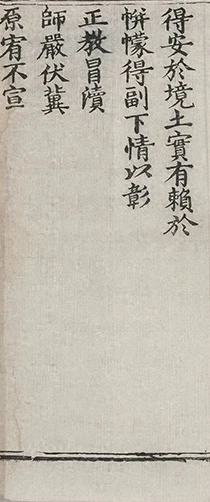 得安於境土實有賴於
帡幪得副下情以彰
正教冒瀆
師嚴伏冀
原宥不宣